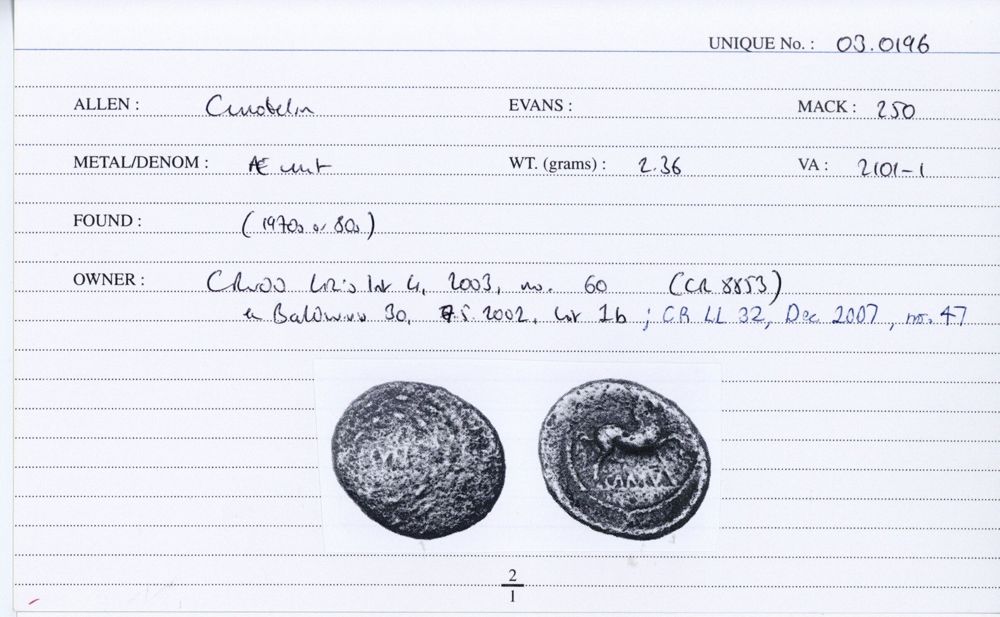 UNIQUE No. : 03.0196
ALLEN : Cunobelin EVANS : MACK : 250
METAL/DENOM : Æ unit WT. (grams) : 2.36 VA : 2101-1
FOUND : (1970s or 80s)
OWNER : List 4, 2003, no. 60 (CR 8853)
ex Baldwins 30, 7.5.2002, lot 16 ; CR LL 32, Dec 2007, no. 47
2
1